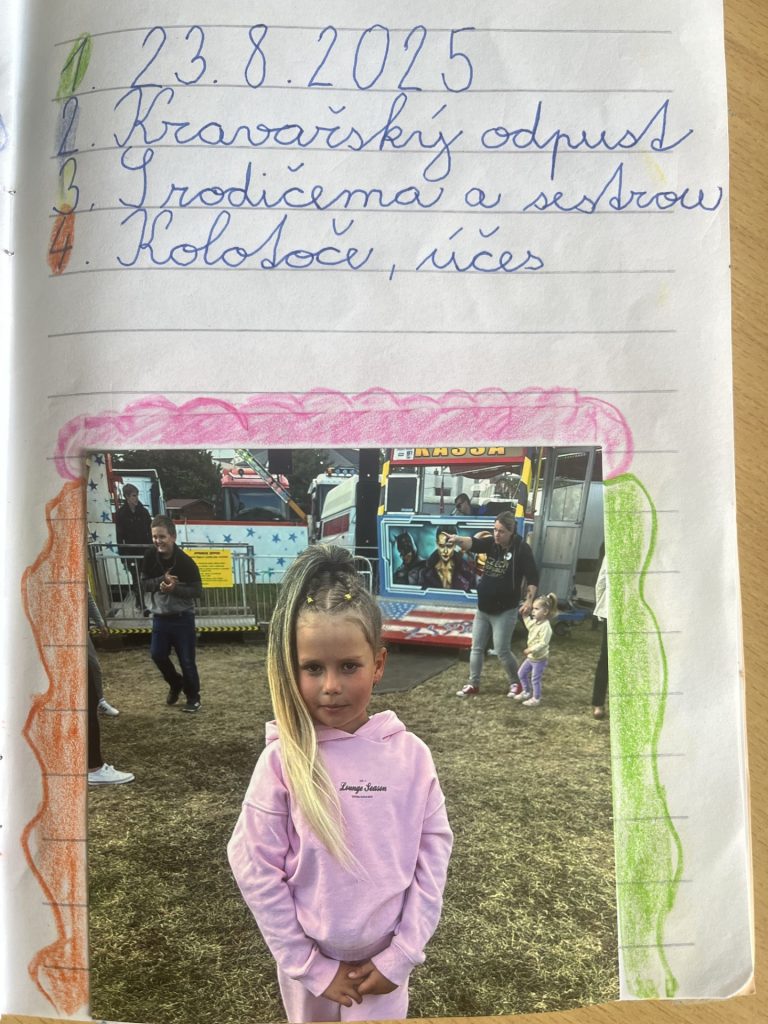 1. 23.8.2025
2. Kravařský odpust
3. S rodičema a sestrou
4. Kolotoče, účes
KASSA
Lounge Season